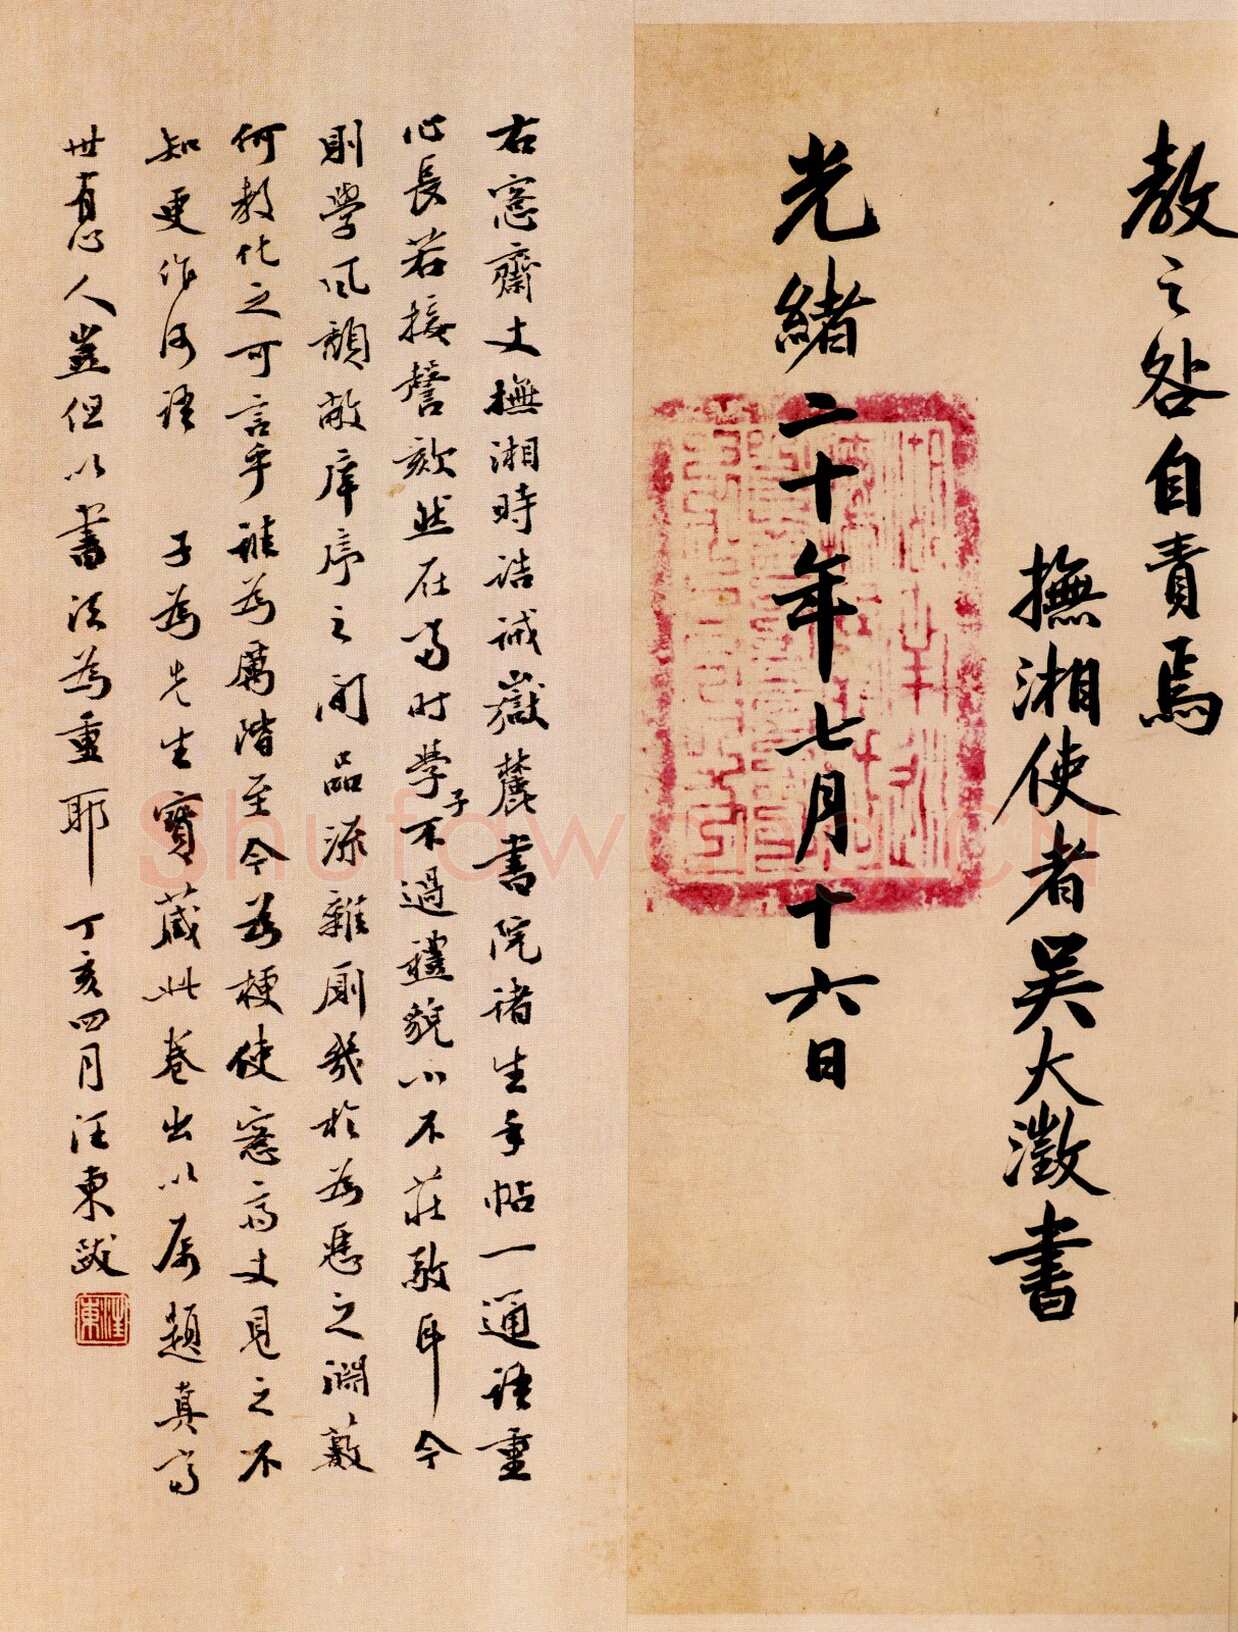 教之咎自責焉
撫湘使者吳大澂書
光緒二十年七月十六日
右愙齋丈撫湘時誥誡嶽麓書院諸生手帖一通語重
心長若接謦欬然在當時學子不過禮貌小不莊敬耳今
則學風頹敝庠序之間品流雜廁幾於為惡之淵藪
何教化之可言乎誰為厲階至今為梗使愙齋丈見之不
知更作何語 子為先生寶藏此卷出以屬題真高
世有心人豈但以書法為重耶 丁亥四月汪東跋
汪東
Shufawu.CN